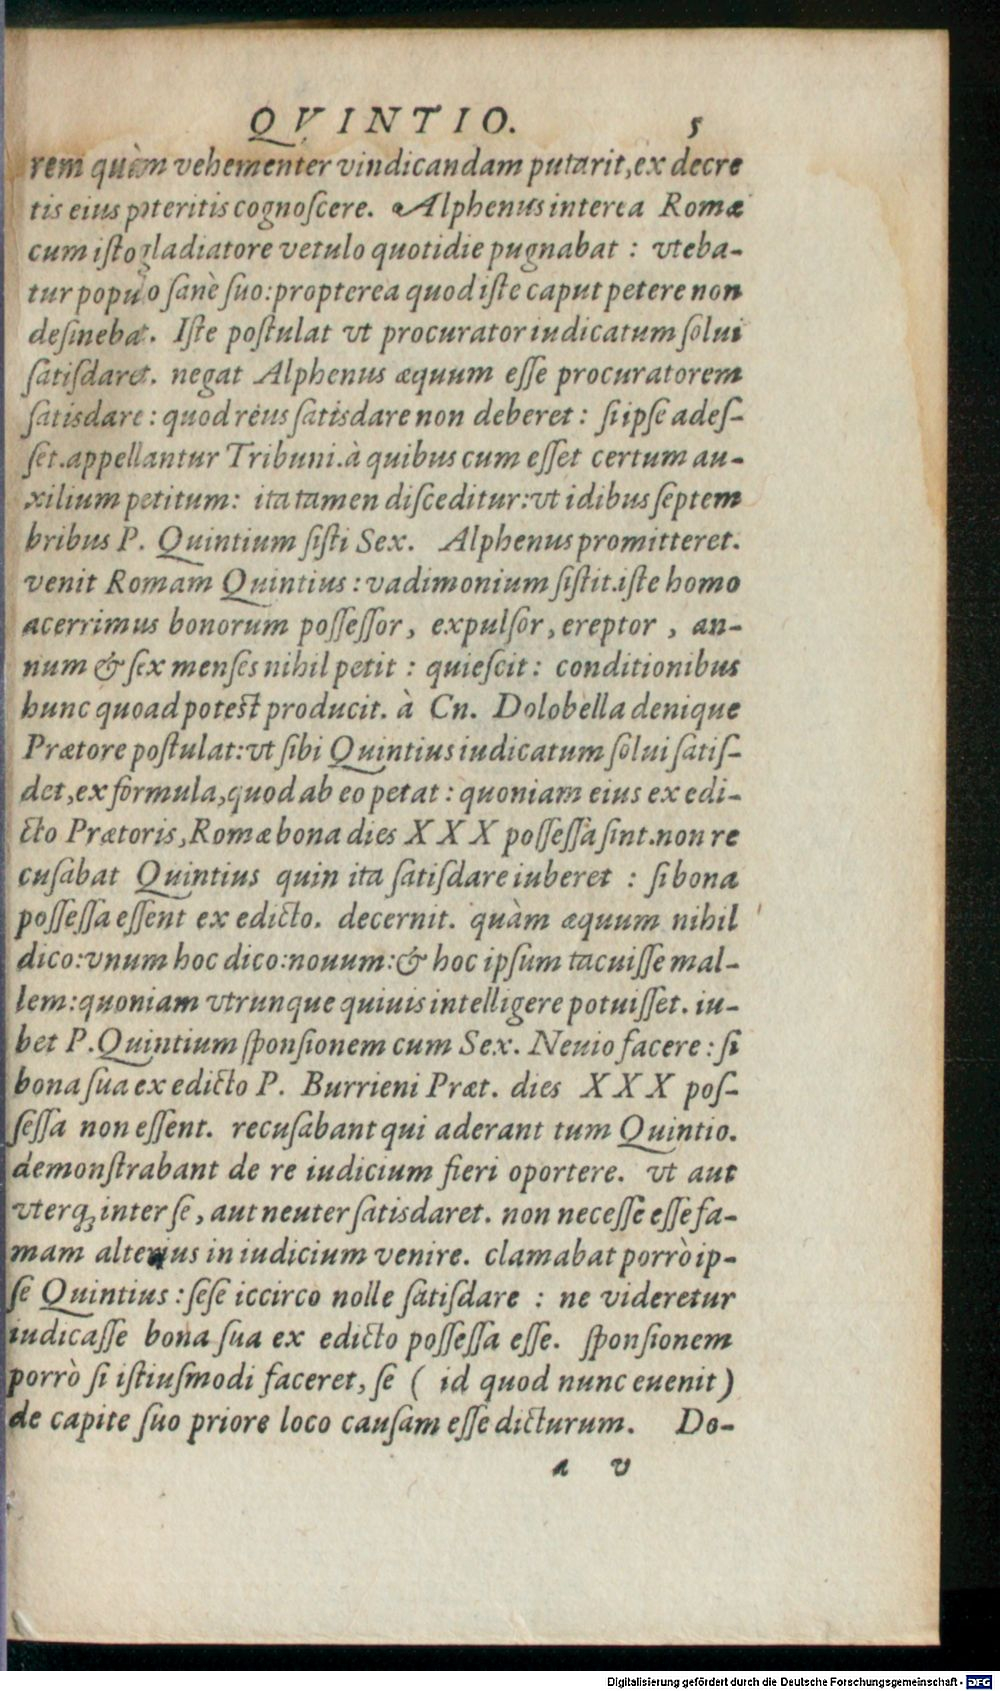 QVINTIO. 5
rem quàm vehementer vindicandam putarit, ex decre
tis eius pteritis cognoſcere. Alphenus interea Romæ
cum iſto gladiatore vetulo quotidie pugnabat : vteba-
tur populo ſanè ſuo: propterea quod iſte caput petere non
deſinebat. Iſte poſtulat vt procurator iudicatum ſolui
ſatiſdaret. negat Alphenus æquum eſſe procuratorem
ſatisdare : quod reus ſatisdare non deberet : ſi ipſe adeſ-
ſet. appellantur Tribuni. à quibus cum eſſet certum au-
xilium petitum: ita tamen diſceditur: vt idibus ſeptem
bribus P. Quintium ſiſti Sex. Alphenus promitteret.
venit Romam Quintius : vadimonium ſiſtit. iſte homo
acerrimus bonorum poſſeſſor, expulſor, ereptor , an-
num & ſex menſes nihil petit : quieſcit : conditionibus
hunc quoad poteſt producit. à Cn. Dolobella denique
Prætore poſtulat: vt ſibi Quintius iudicatum ſolui ſatiſ-
det, ex formula, quod ab eo petat : quoniam eius ex edi-
cto Prætoris, Romæ bona dies XXX poſſeſſa ſint. non re
cuſabat Quintius quin ita ſatiſdare iuberet : ſi bona
poſſeſſa eſſent ex edicto. decernit. quàm æquum nihil
dico: vnum hoc dico: nouum: & hoc ipſum tacuiſſe mal-
lem: quoniam vtrunque quiuis intelligere potuiſſet. iu-
bet P. Quintium ſponſionem cum Sex. Neuio facere : ſi
bona ſua ex edicto P. Burrieni Præt. dies XXX poſ-
ſeſſa non eſſent. recuſabant qui aderant tum Quintio.
demonſtrabant de re iudicium fieri oportere. vt aut
vterq; inter ſe, aut neuter ſatisdaret. non neceſſe eſſe fa-
mam alterius in iudicium venire. clamabat porrò ip-
ſe Quintius : ſeſe iccirco nolle ſatiſdare : ne videretur
iudicaſſe bona ſua ex edicto poſſeſſa eſſe. ſponſionem
porrò ſi iſtiuſmodi faceret, ſe ( id quod nunc euenit )
de capite ſuo priore loco cauſam eſſe dicturum. Do-
a v
Digitalisierung gefördert durch die Deutsche Forschungsgemeinschaft - DFG